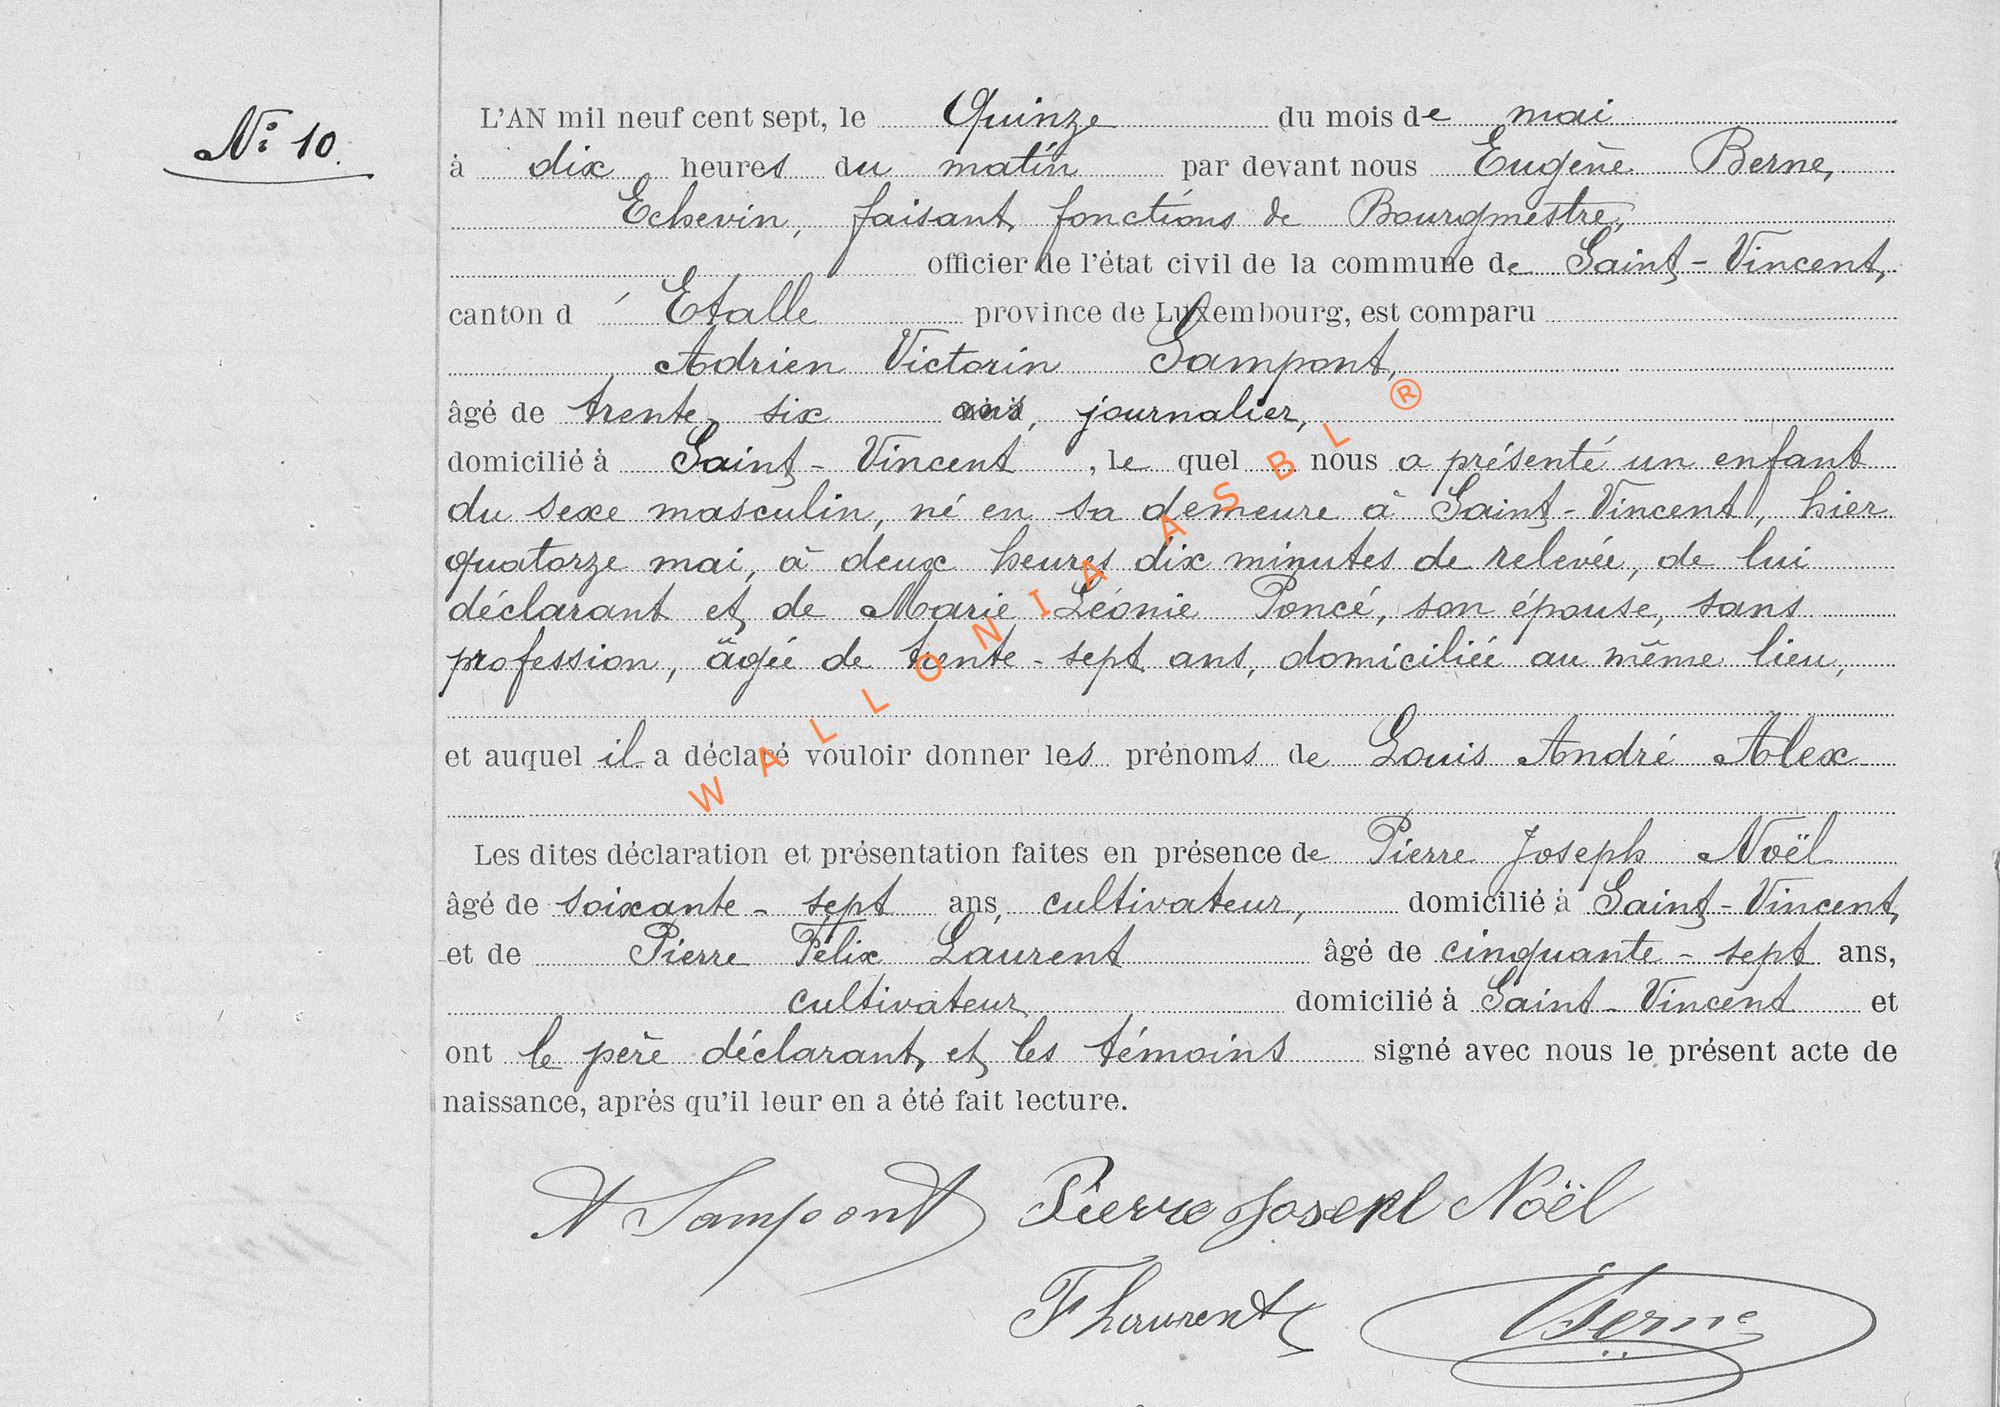 N° 10.
L'AN mil neuf cent sept, le Quinze du mois de mai
à dix heures du matin par devant nous Eugène Berne,
Echevin, faisant fonctions de Bourgmestre,
officier de l'état civil de la commune de Saint-Vincent,
canton d'Etalle province de Luxembourg, est comparu
Adrien Victorin Sampont,
âgé de trente-six ans, journalier,
domicilié à Saint-Vincent, le quel nous a présenté un enfant
du sexe masculin, né en sa demeure à Saint-Vincent, hier
quatorze mai, à deux heures dix minutes de relevée, de lui
déclarant et de Marie Léonie Poncé, son épouse, sans
profession, âgée de trente-sept ans, domiciliée au même lieu,
et auquel il a déclaré vouloir donner les prénoms de Louis André Alex
Les dites déclaration et présentation faites en présence de Pierre Joseph Noël
âgé de soixante-sept ans, cultivateur, domicilié à Saint-Vincent,
et de Pierre Félix Laurent âgé de cinquante-sept ans,
cultivateur domicilié à Saint-Vincent et
ont le père déclarant et les témoins signé avec nous le présent acte de
naissance, après qu'il leur en a été fait lecture.
A Sampont Pierre Joseph Noël
F Laurent Berne
WALLONIA ASBL ®